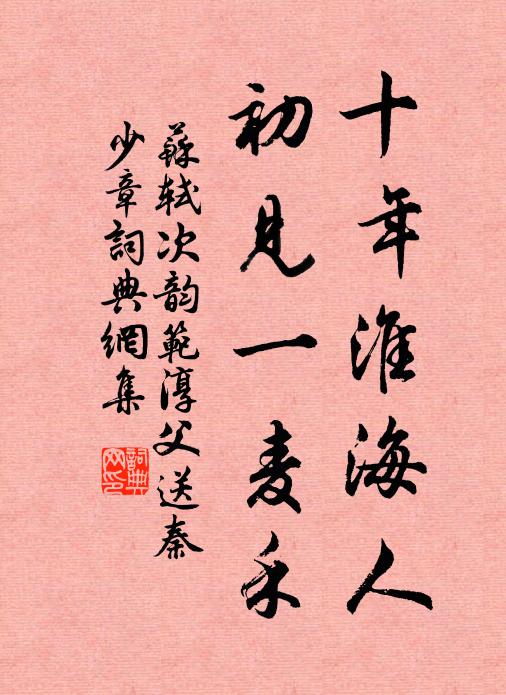 十年淮海人
初見一麦禾
蘇軾次韵範淳父送秦
少章詞典網集
詞典网印